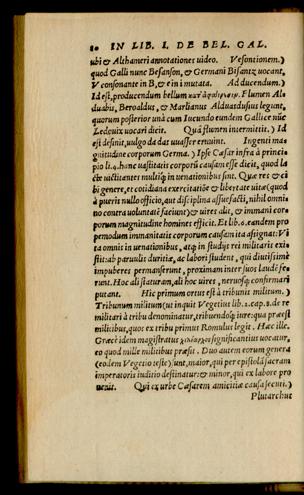 80 IN LIB. I. DE BEL. GAL.
ubi & Althameri annotationes uideo. Vesontionem.)
quod Galli nunc Besanson, & Germani Bisantz uocant,
V consonante in B, & e in i mutata. Ad ducendum.)
Id est, producendum bellum Flumen Al-
duabis, Beroaldus, & Marlianus Alduadusius legunt,
quorum posterior unà cum Iucundo eundem Gallicè nũc
Ledoux uocari dicit. Quà flumen intermittit.) Id
est desinit, uulgo da dat uuasser erwint. Ingenti ma-
gnitudine corporum Germa.) Ipse Cæsar infra à princi-
pio li.4. hanc uastitatis corporis causam esse dicit, quod la
cte uictitantes multũq; in uenationibus sunt. Quæ res & ci
bi genere, et cotidiana exercitatiõe & libertate uitæ (quod
à pueris nullo officio, aut disciplina assuefacti, nihil omni-
no contra uoluntatẽ faciunt) & uires alit, & immani cor-
porum magnitudine homines efficit. Et lib.6. eandem pro
pemodum immanitatis corporum causam ita assignat: Vi
ta omnis in uenationibus, atq; in studijs rei militaris exi-
stit: ab paruulis duritiæ, ac labori student, qui diutissimè
impuberes permanserunt, proximam inter suos laudẽ fe-
runt. Hoc ali staturam, ali hoc uires, neruosq; confirmari
putant. Hic primum ortus est à tribunis militum.)
Tribunum militum (ut inquit Vegetius lib.2. cap.8. de re
militari à tribu denominatur, tribuendóq; iure: qua præest
militibus, quos ex tribu primus Romulus legit. Hæc ille.
Græcè idem magistratus χιλίαρχος significantius uocatur,
eo quod mille militibus præsit. Duo autem eorum genera
(eodem Vegetio teste) sunt, maior, qui per epistolã sacram
imperatoris iuditio destinatur: & minor, qui ex labore pro
uenit. Qui ex urbe Cæsarem amicitiæ causa secuti.)
Plutarchus